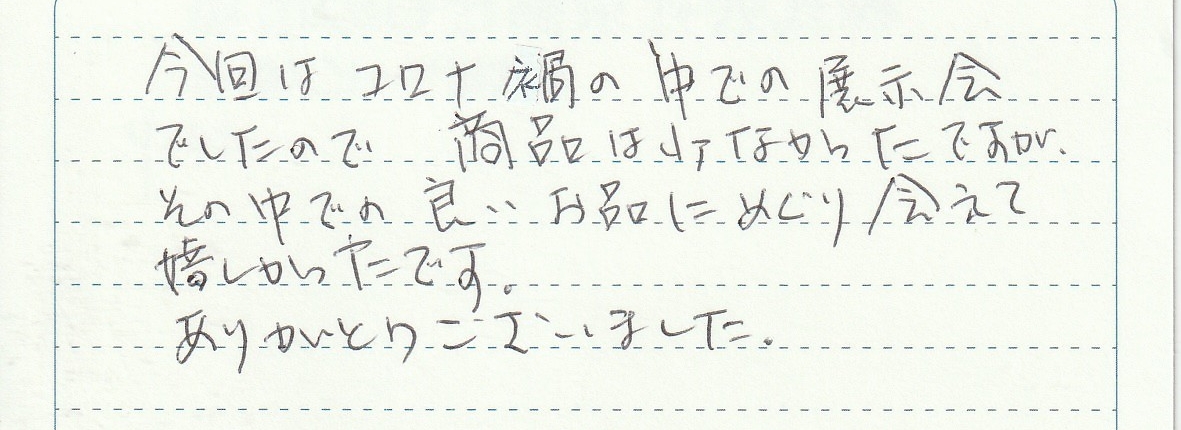 今回はコロナ禍の中での展示会
でしたので 商品は少なかったですが、
その中での良いお品にめぐり会えて
嬉しかったです。
ありがとうございました。